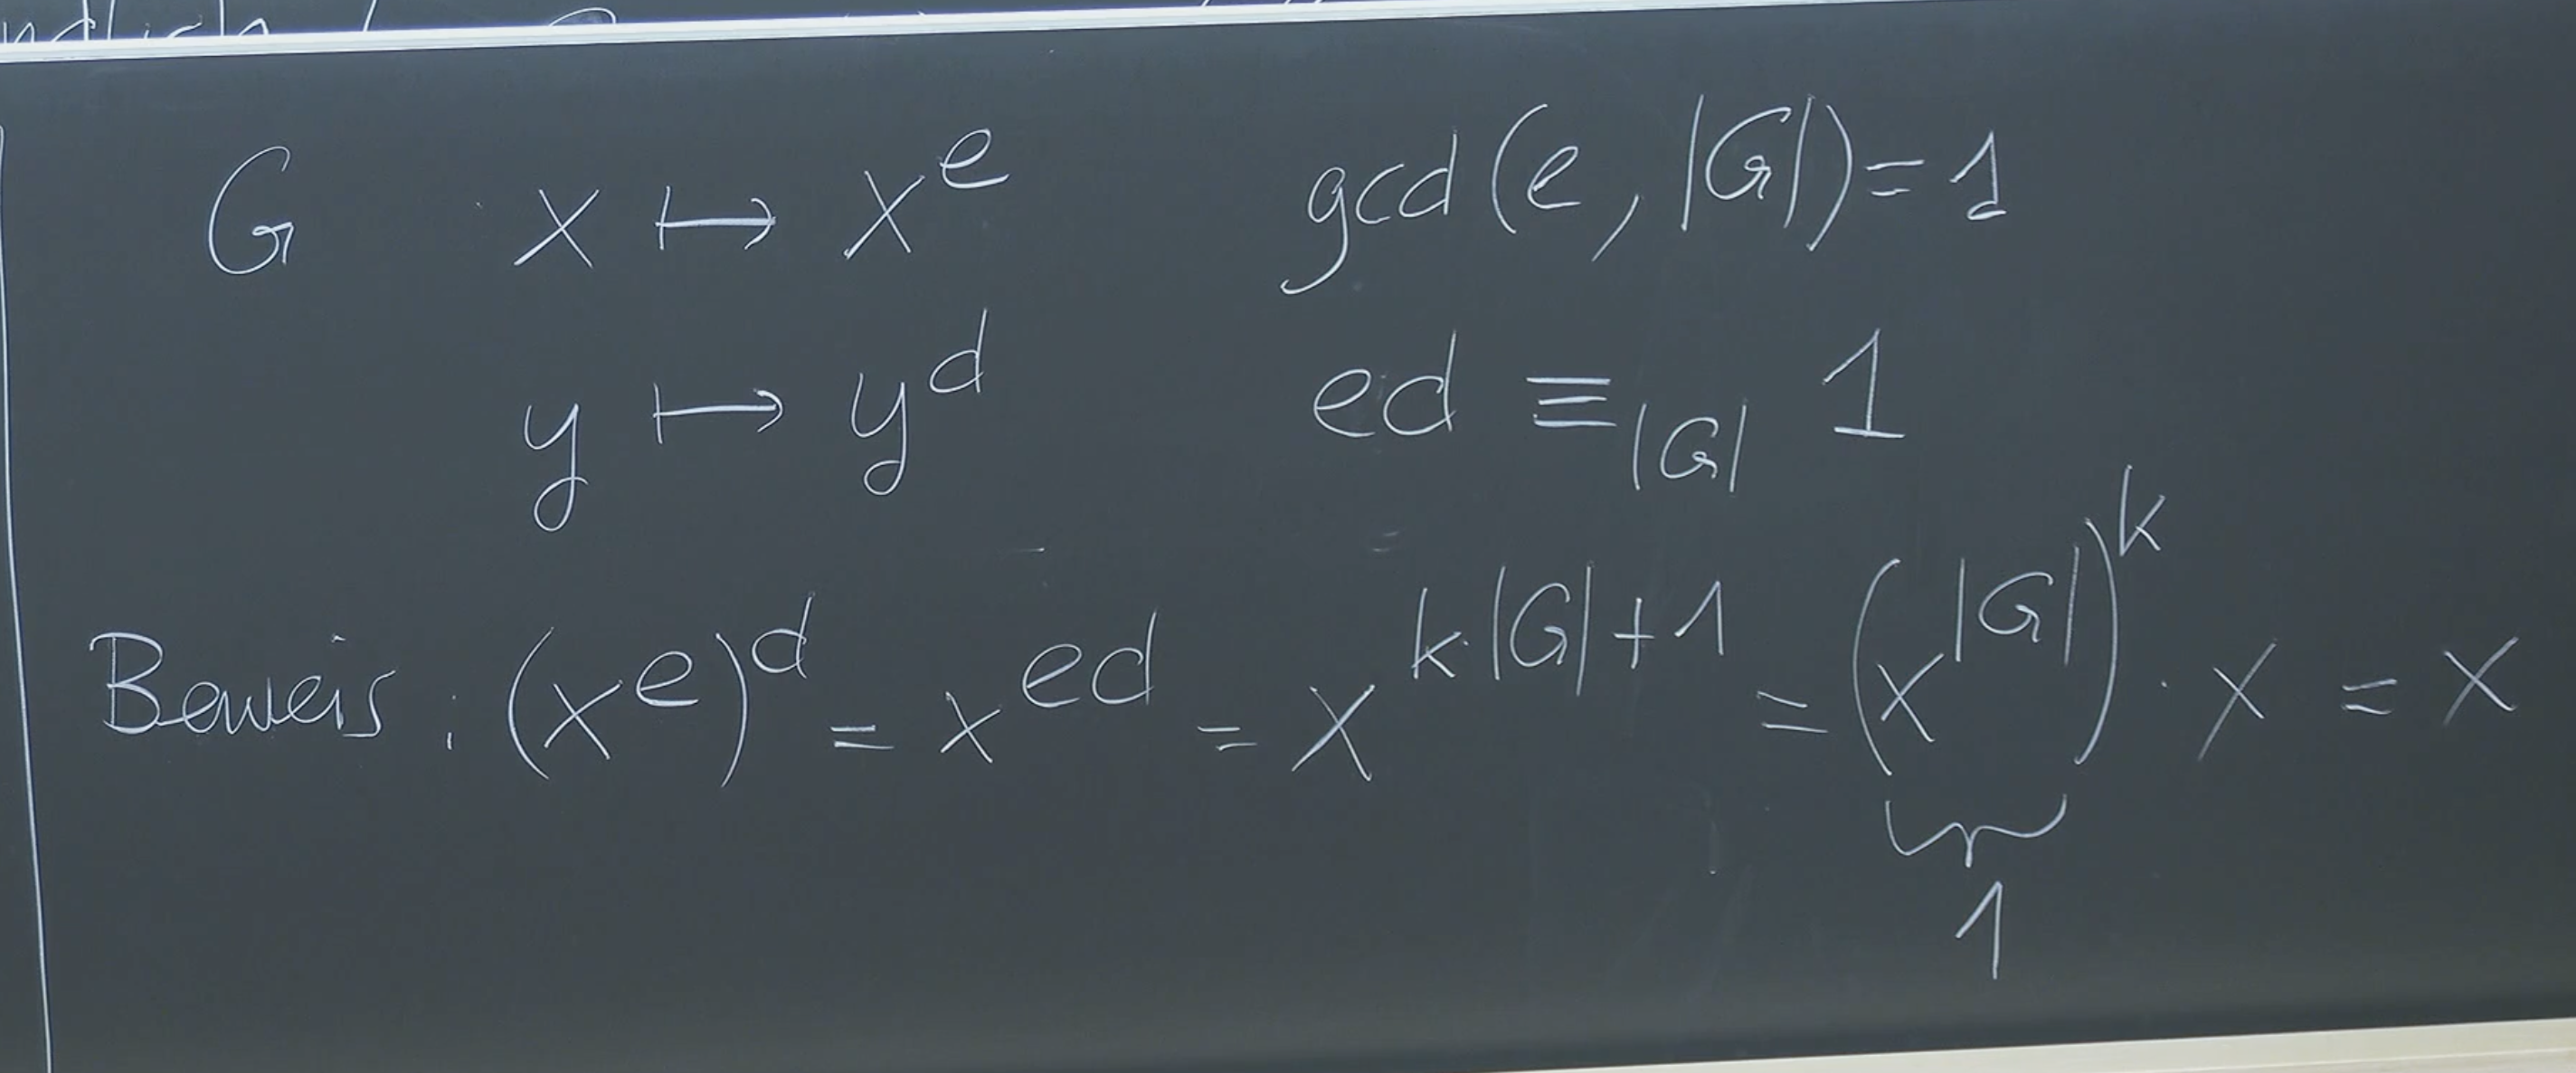 G x ↦ x^e gcd(e, |G|) = 1
y ↦ y^d ed ≡_{|G|} 1
Beweis: (x^e)^d = x^{ed} = x^{k·|G|+1} = (x^{|G|})^k · x = x
1